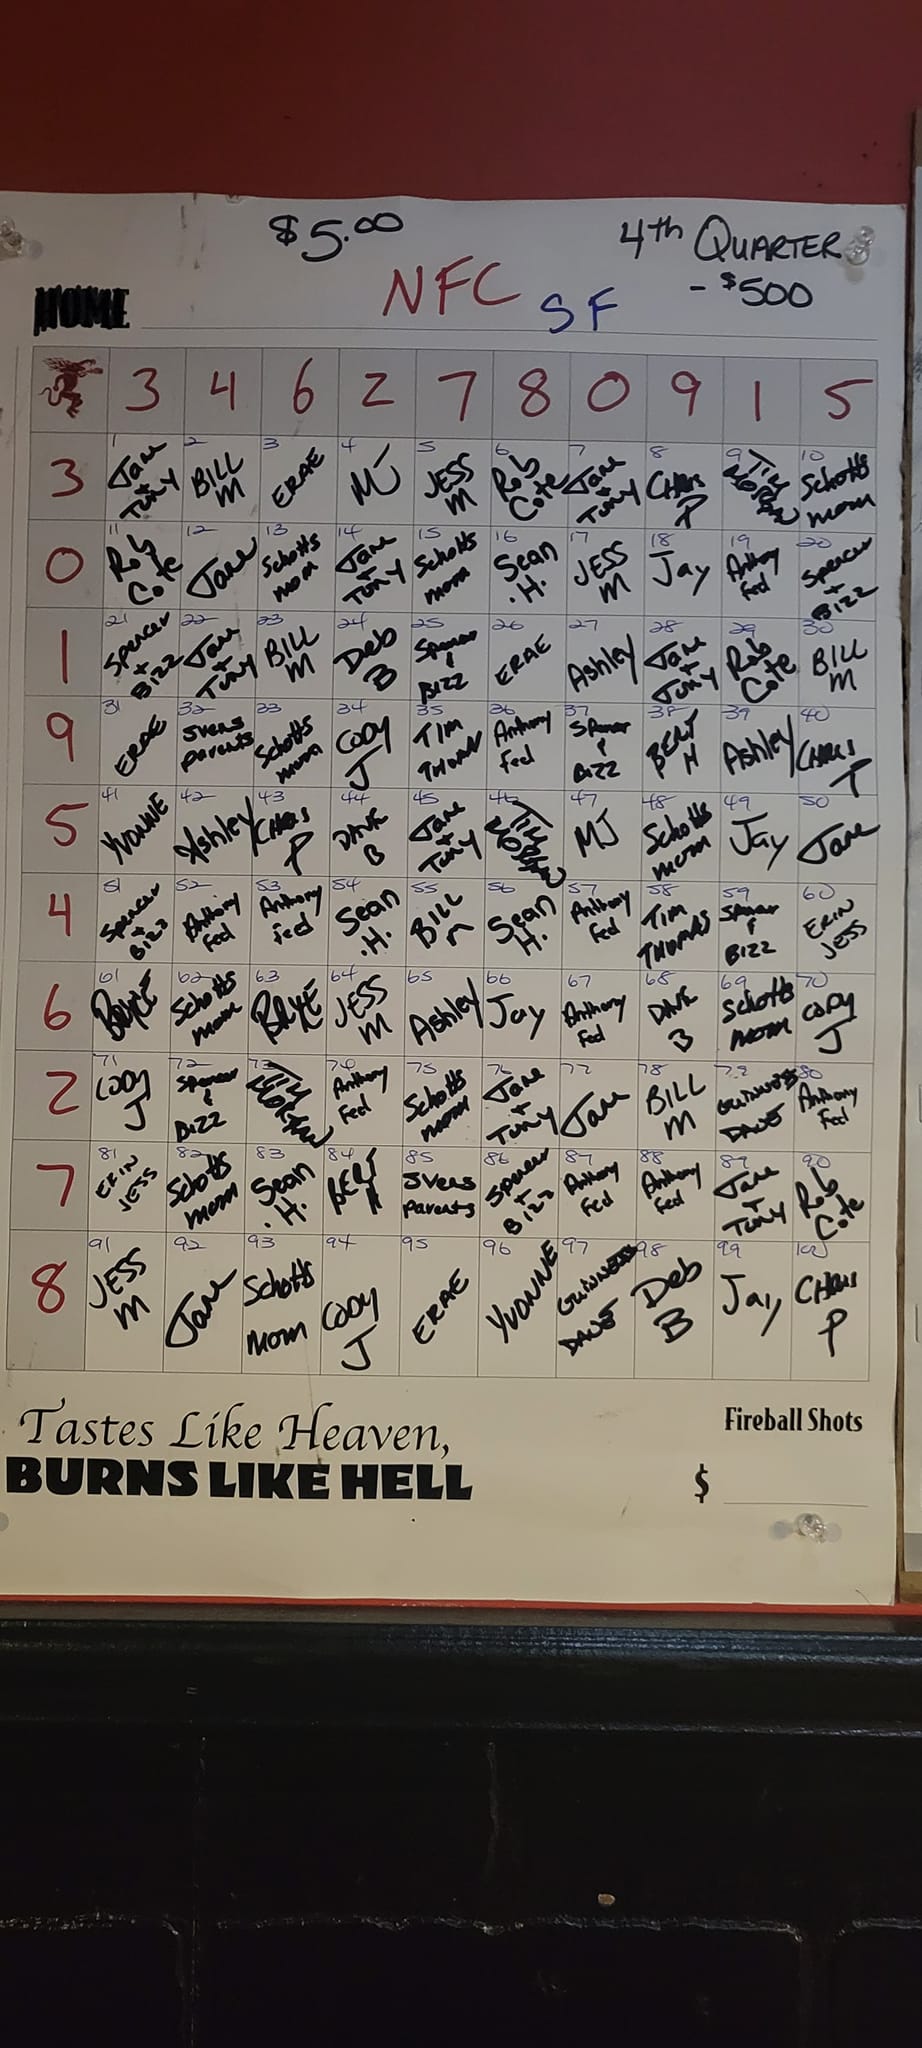 $5.00
4th QUARTER
- $500
HOME
NFC SF
3 4 6 2 7 8 0 9 1 5
1 2 3 4 5 6 7 8 9 10
3 Jane + Tony BILL M ERAE MJ JESS M Rob Cote Jane + Tony CHRIS P Schotts mom
11 12 13 14 15 16 17 18 19 20
0 Rob Cote Jane Schotts mom Jane + Tony Schotts mom Sean .H. JESS M Jay Anthony Fed Spencer + Bizz
21 22 23 24 25 26 27 28 29 30
1 Spencer + Bizz Jane + Tony BILL M Deb B Spencer & Bizz ERAE Ashley Jane + Tony Rob Cote BILL M
31 32 33 34 35 36 37 38 39 40
9 ERAE JVers parents Schotts mom CODY J TIM THOMAS Anthony Fed Spencer & Bizz BERT H Ashley CHRIS P
41 42 43 44 45 46 47 48 49 50
5 YVONNE Ashley CHRIS P DAVE B Jane + Tony MJ Schotts mom Jay Jane
51 52 53 54 55 56 57 58 59 60
4 Spencer + Bizz Anthony Fed Anthony Fed Sean .H. BILL M Sean H. Anthony Fed TIM THOMAS Spencer & Bizz ERIN JESS
61 62 63 64 65 66 67 68 69 70
6 Schotts mom JESS M Ashley Jay Anthony Fed DAVE B Schotts mom CODY J
71 72 73 74 75 76 77 78 79 80
2 CODY J Spencer & Bizz Anthony Fed Schotts mom Jane + Tony Jane BILL M GUINNESS DAVE Anthony Fed
81 82 83 84 85 86 87 88 89 90
7 ERIN JESS Schotts mom Sean .H. BERT H JVers parents Spencer + Bizz Anthony Fed Anthony Fed Jane + Tony Rob Cote
91 92 93 94 95 96 97 98 99 100
8 JESS M Jane Schotts mom CODY J ERAE YVONNE GUINNESS DAVE Deb B Jay CHRIS P
Tastes Like Heaven,
BURNS LIKE HELL
Fireball Shots
$